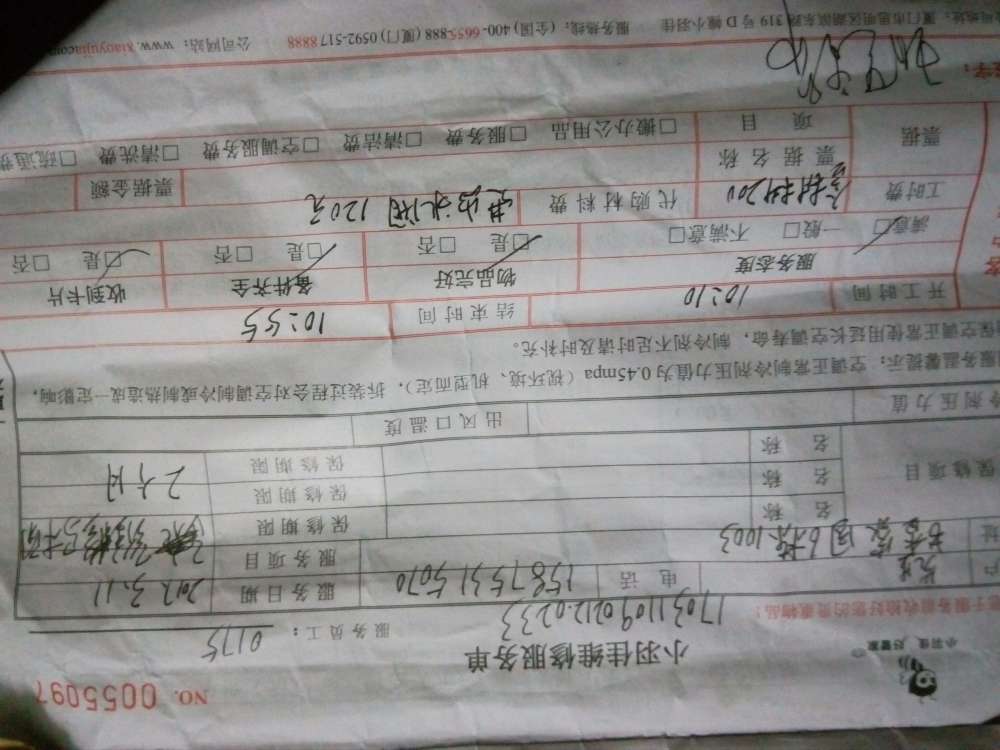 NO. 0055097
小羽佳 好管家
小羽佳维修服务单
服务员工: 0175
170311090212.0233
于服务前收捡好您的贵重物品!
户 先生 电话 15875315070 服务日期 2017.3.11
址 园6栋1003 服务项目
保修项目 名称 保修期限
名称 保修期限 2个月
名称 保修期限
冷剂压力值 出风口温度
服务温馨提示: 空调正常制冷剂压力值为0.45mpa (视环境、机型而定), 拆装过程会对空调制冷或制热造成一定影响,
保空调正常使用延长空调寿命, 制冷剂不足时请及时补充。
开工时间 10:10 结束时间 10:55
服务态度 物品完好 备件齐全 收到卡片
☑满意 一般□ 不满意□ ☑是 □否 ☑是 □否 ☑是 □否
工时费 200 代购材料费 120元
票据 票据名称 票据金额
项目 □搬办公用品 □服务费 □清洁费 □空调服务费 □清洗费 □疏通费
签字:
厦门市思明区湖滨东路319号D幢小羽佳 服务热线: (全国) 400-6655-888 (厦门) 0592-5178888 公司网站: www.xiaoyujia.com